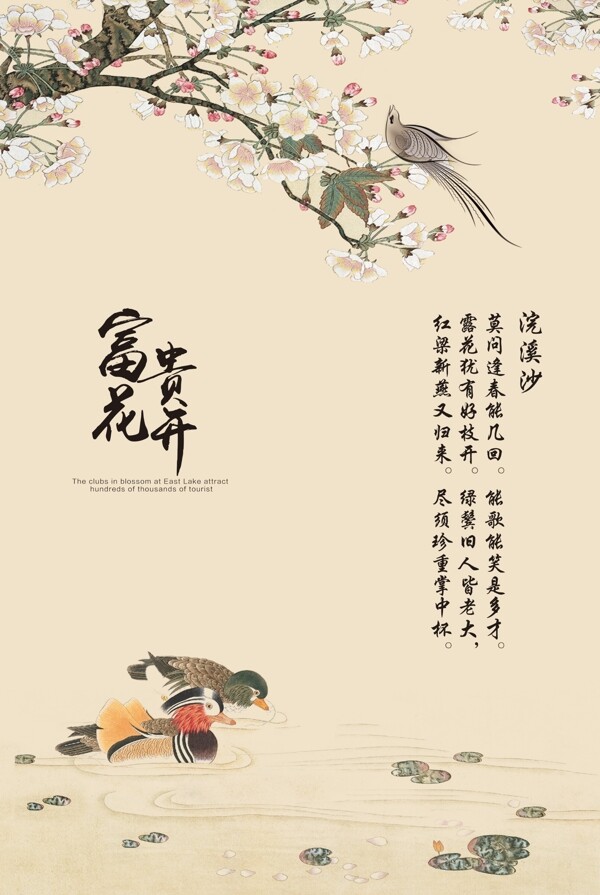 浣溪沙
莫问逢春能几回。能歌能笑是多才。
露花犹有好枝开。绿鬓旧人皆老大，
红梁新燕又归来。尽须珍重掌中杯。
富贵
花开
The clubs in blossom at East Lake attract
hundreds of thousands of tourist